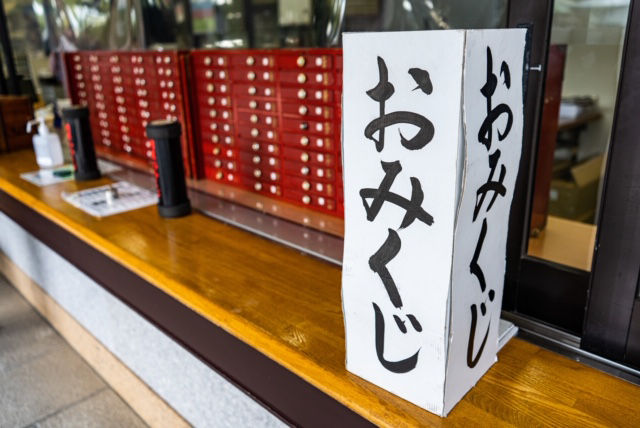 おみくじ
おみくじ